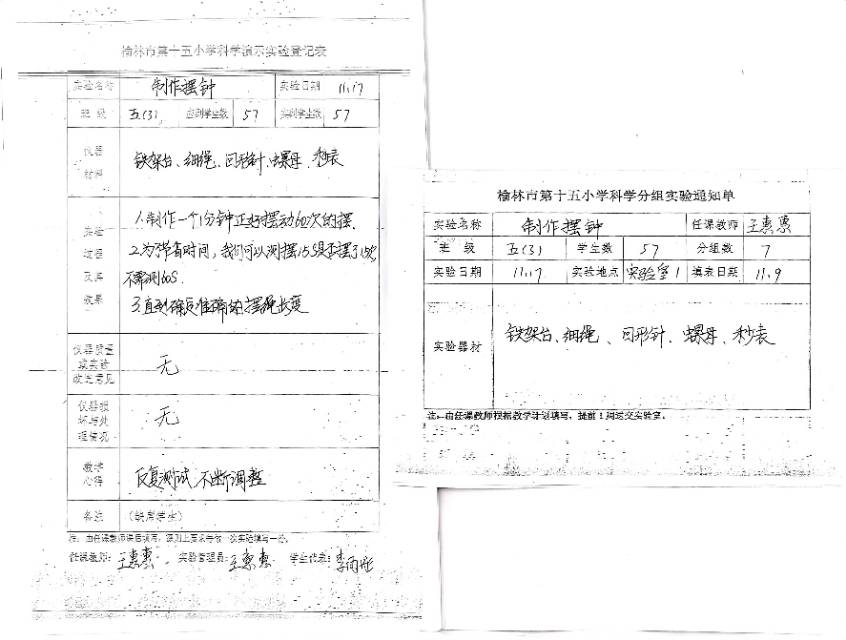 榆林市第十五小学科学演示实验登记表
实验名称 制作摆钟 实验日期 11.17
班 级 五(3) 应到学生数 57 实到学生数 57
仪器
材料
铁架台、细绳、回形针、螺母、秒表
实验
过程
及其
效果
1.制作一个1分钟正好摆动60次的摆.
2.为了节省时间，我们可以测摆15S是否摆了15次
不需测60S.
3.直到确定准确的摆绳长度
仪器质量
或实验
改进意见
无
仪器损
坏与处
理情况
无
教学
心得
反复测试,不断调整
备注 (缺席学生)
任课教师: 王惠惠. 实验管理员: 王惠惠 学生代表:
榆林市第十五小学科学分组实验通知单
实验名称 制作摆钟 任课教师 王惠惠
班 级 五(3) 学生数 57 分组数 7
实验日期 11.17 实验地点 实验室1 填表日期 11.9
实验器材 铁架台、细绳、回形针、螺母、秒表
注：由任课教师根据教学计划填写，提前1周送交实验室。